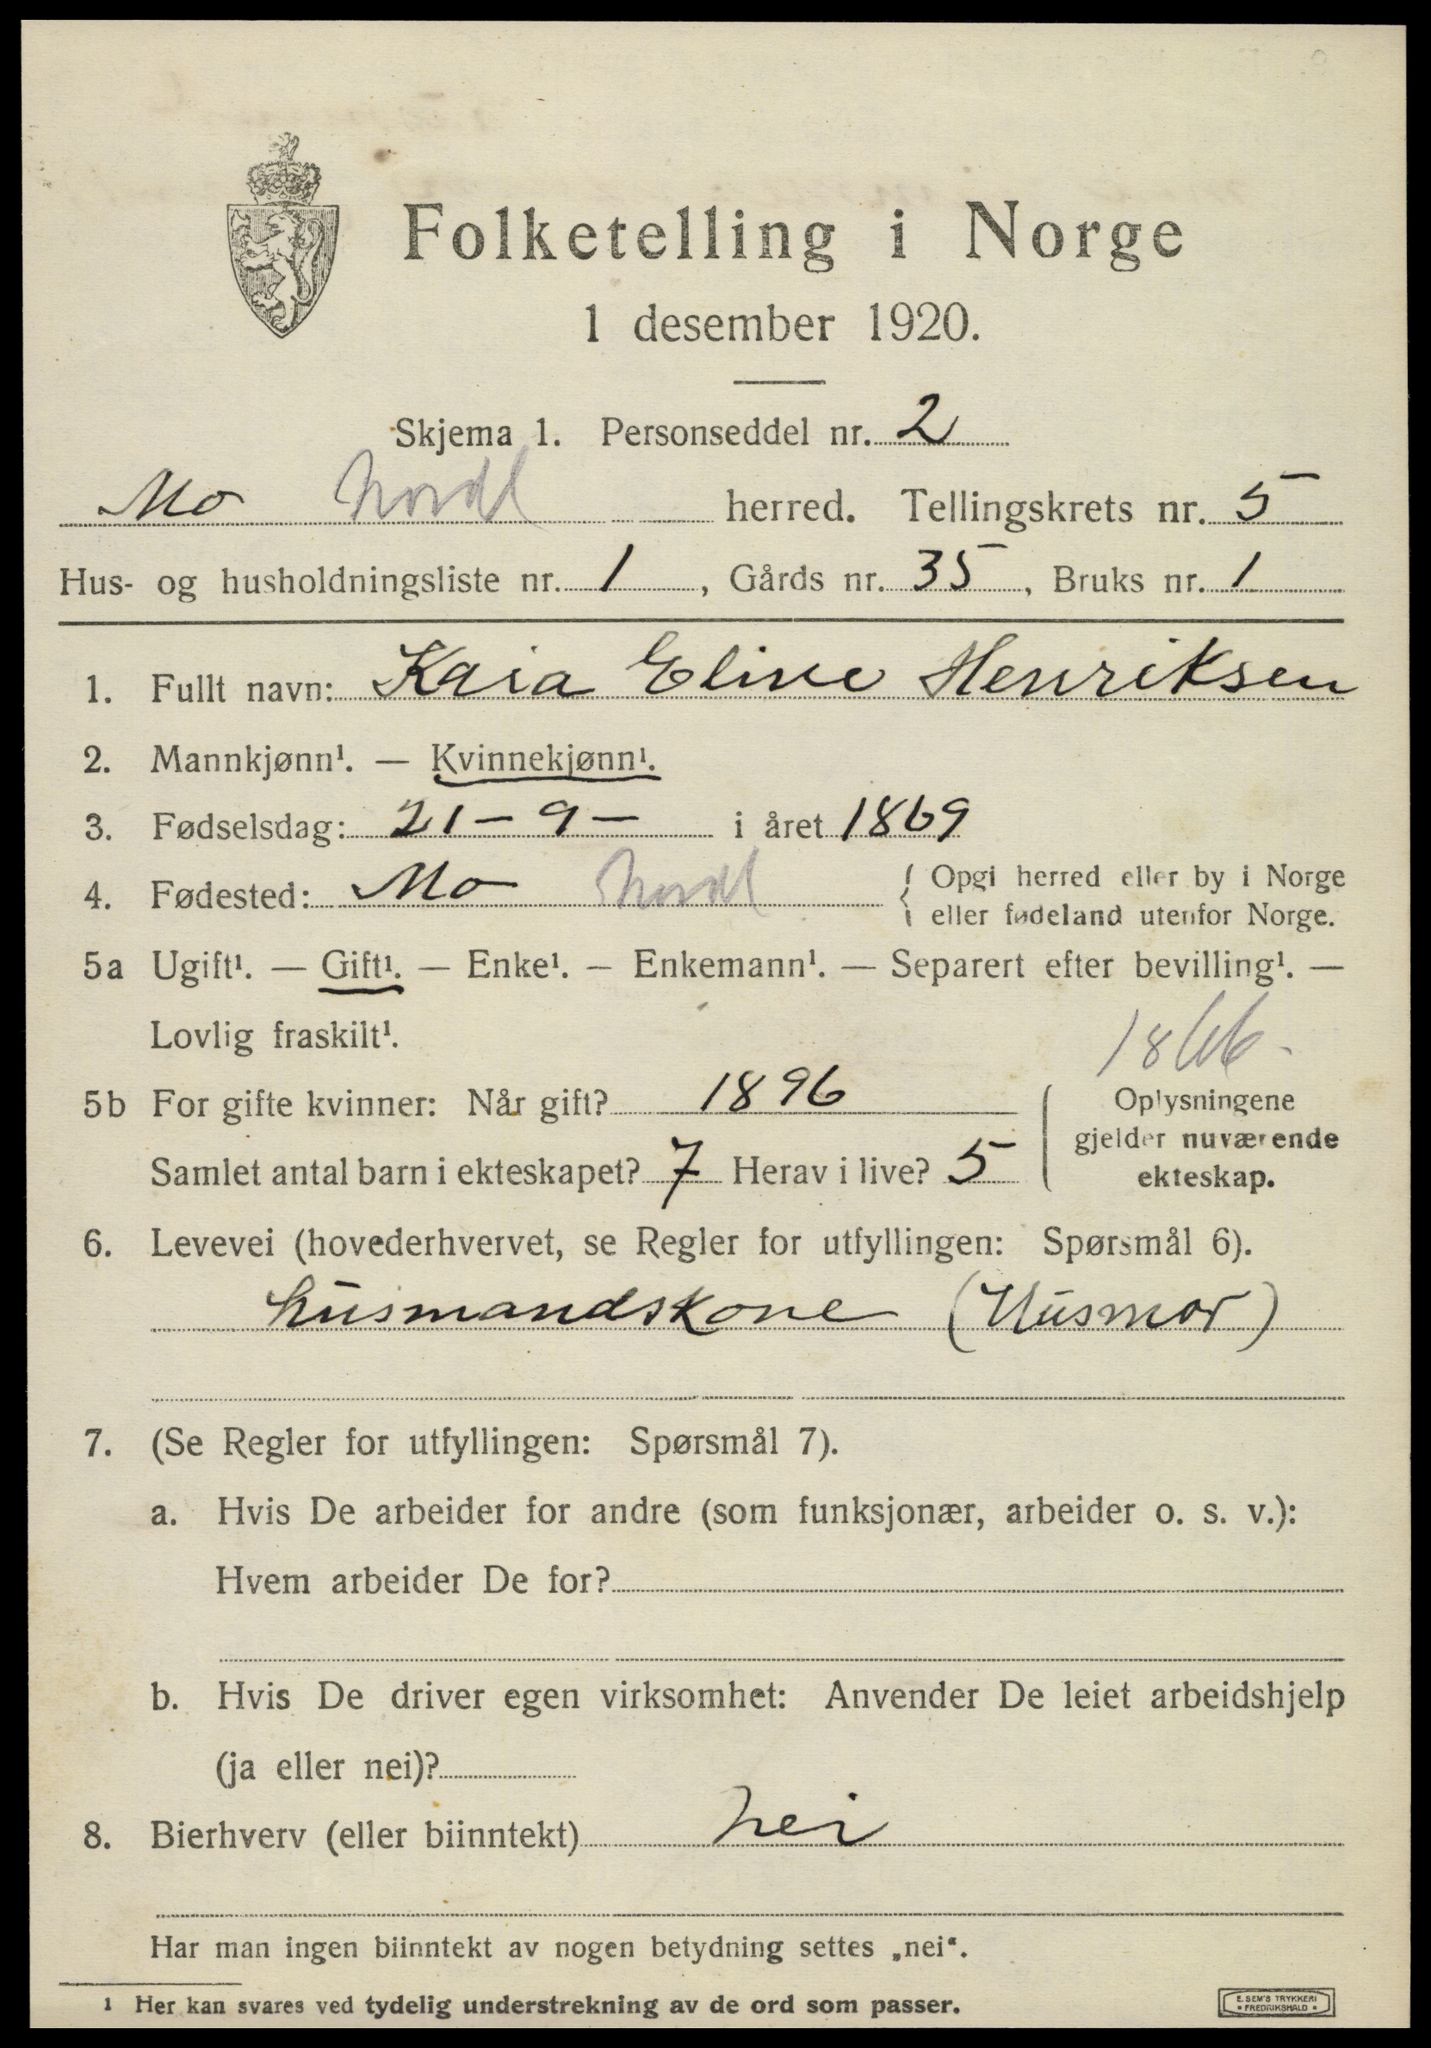 Folketelling i Norge
1 desember 1920.
Skjema 1. Personseddel nr. 2
Mo Nordl herred. Tellingskrets nr. 5
Hus- og husholdningsliste nr. 1, Gårds nr. 35, Bruks nr. 1
1. Fullt navn: Kaia Eline Henriksen
2. Mannkjønn¹. — Kvinnekjønn¹.
3. Fødselsdag: 21-9- i året 1869
4. Fødested: Mo Nordl { Opgi herred eller by i Norge
eller fødeland utenfor Norge.
5a Ugift¹. — Gift¹. — Enke¹. — Enkemann¹. — Separert efter bevilling¹. —
Lovlig fraskilt¹.
1866.
5b For gifte kvinner: Når gift? 1896
Samlet antal barn i ekteskapet? 7 Herav i live? 5
Oplysningene
gjelder nuværende
ekteskap.
6. Levevei (hovederhvervet, se Regler for utfyllingen: Spørsmål 6).
husmandskone (Husmor)
7. (Se Regler for utfyllingen: Spørsmål 7).
a. Hvis De arbeider for andre (som funksjonær, arbeider o. s. v.):
Hvem arbeider De for?
b. Hvis De driver egen virksomhet: Anvender De leiet arbeidshjelp
(ja eller nei)?
8. Bierhverv (eller biinntekt) nei
Har man ingen biinntekt av nogen betydning settes „nei“.
1 Her kan svares ved tydelig understrekning av de ord som passer.
E. SEM'S TRYKKERI
• FREDRIKSHALD •